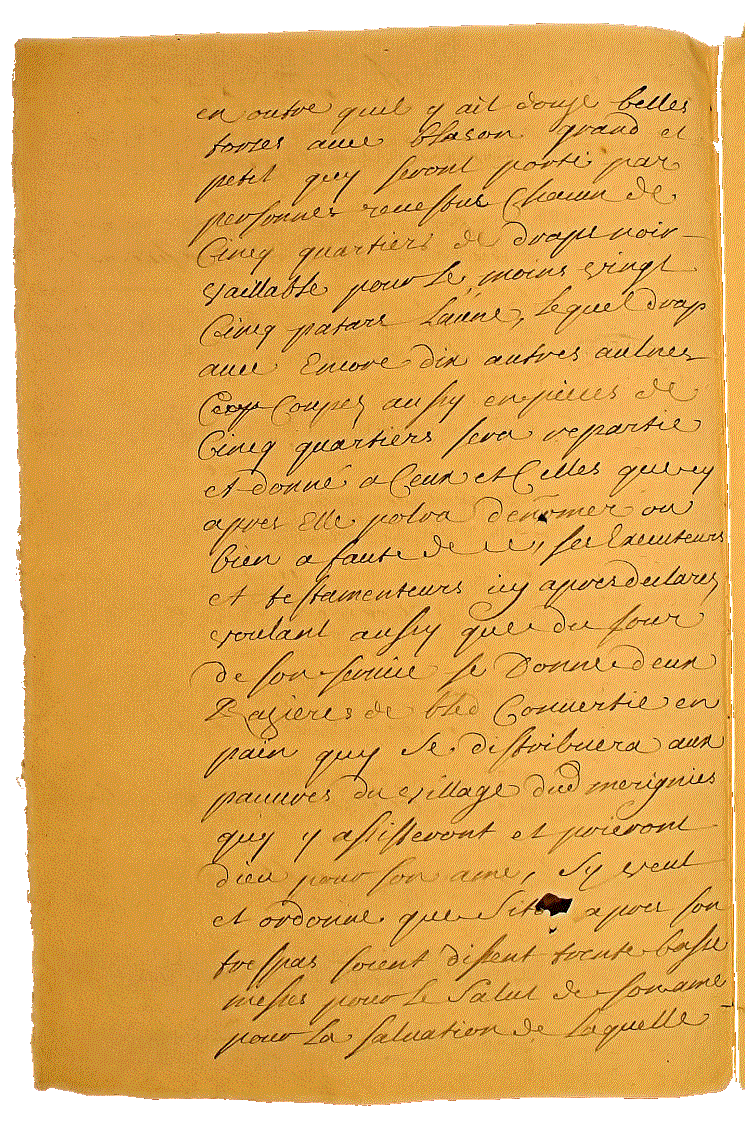 en outre quil y ait douze belles
torses avec blason grand et
petit quy seront porté par
personnes revestus chacun de
Cinq quartiers de draps noir
vaillable pour le moins vingt
Cinq patars Laüne, lequel drap
avec Encore dix autres aulnes
Coupez aussy en pieces de
Cinq quartiers sera repartie
et donné a Ceux et Celles que cy
apres Elle polra denommer ou
bien a faute de ce, ses Executeurs
et testamenteurs icy apres declarez
voulant aussy que du jour
de son service se Donne deux
Razieres de bled Convertie en
pain quy se distribuera aux
pauvres du village dud merignies
quy y assisteront et prieront
dieu pour son ame, sy veut
et ordonne que Sitost apres son
trespas soient dissent trente basse
messes pour le Salut de son ame
pour La salvation de Laquelle